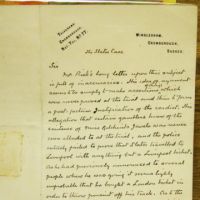 TELEGRAMS,
CROWBOROUGH.
TEL. NO 77.
WINDLESHAM,
CROWBOROUGH,
SUSSEX.
The Slater Case
Sir
Mr Park's long letter upon this subject
is full of inaccuracies. His idea of argument
seems to simply to make assertions which
were never proved at the trial and then to
a post justification of the verdict. His
allegation that certain gamblers knew of the
existence of Miss Gilchrist's jewels was never
even alluded to at the trial, and the police
entirely failed to prove that Slater travelled to
Liverpool with anything but a Liverpool ticket.
As he had previously announced to several
people where he was going it seems highly
improbable that he bought a London ticket in
order to throw pursuit off his track. As to the